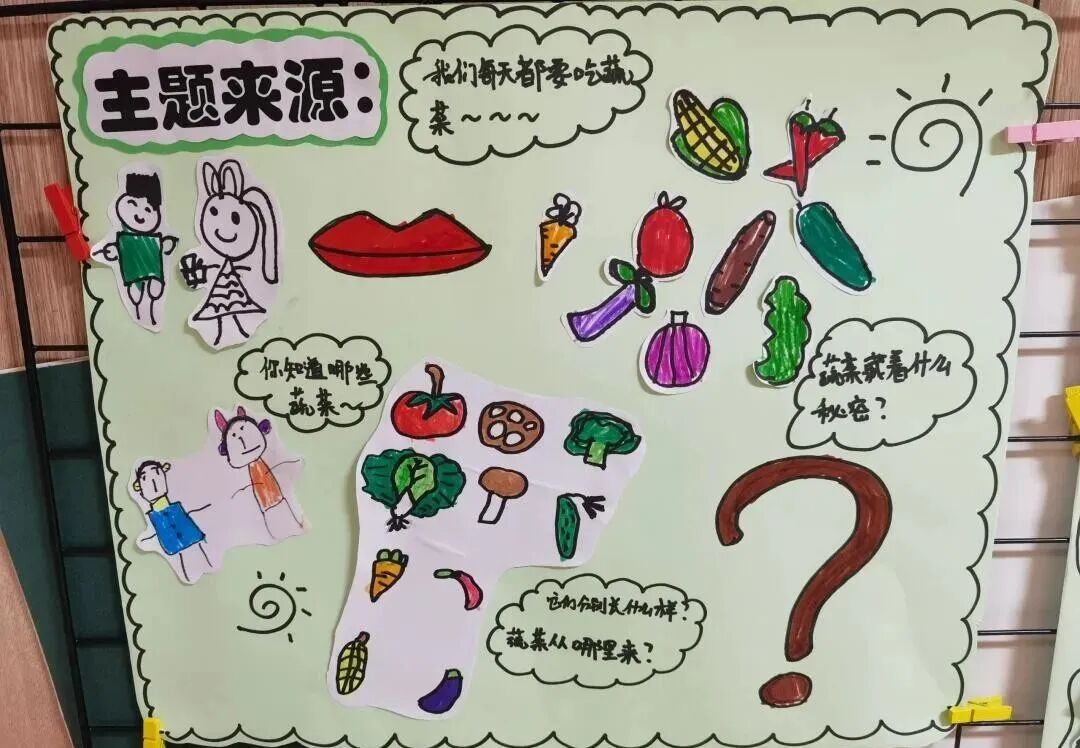 主题来源:
我们每天都要吃蔬
菜~~~
你知道哪些
蔬菜~
蔬菜藏着什么
秘密?
它们分别长什么样?
蔬菜从哪里来?